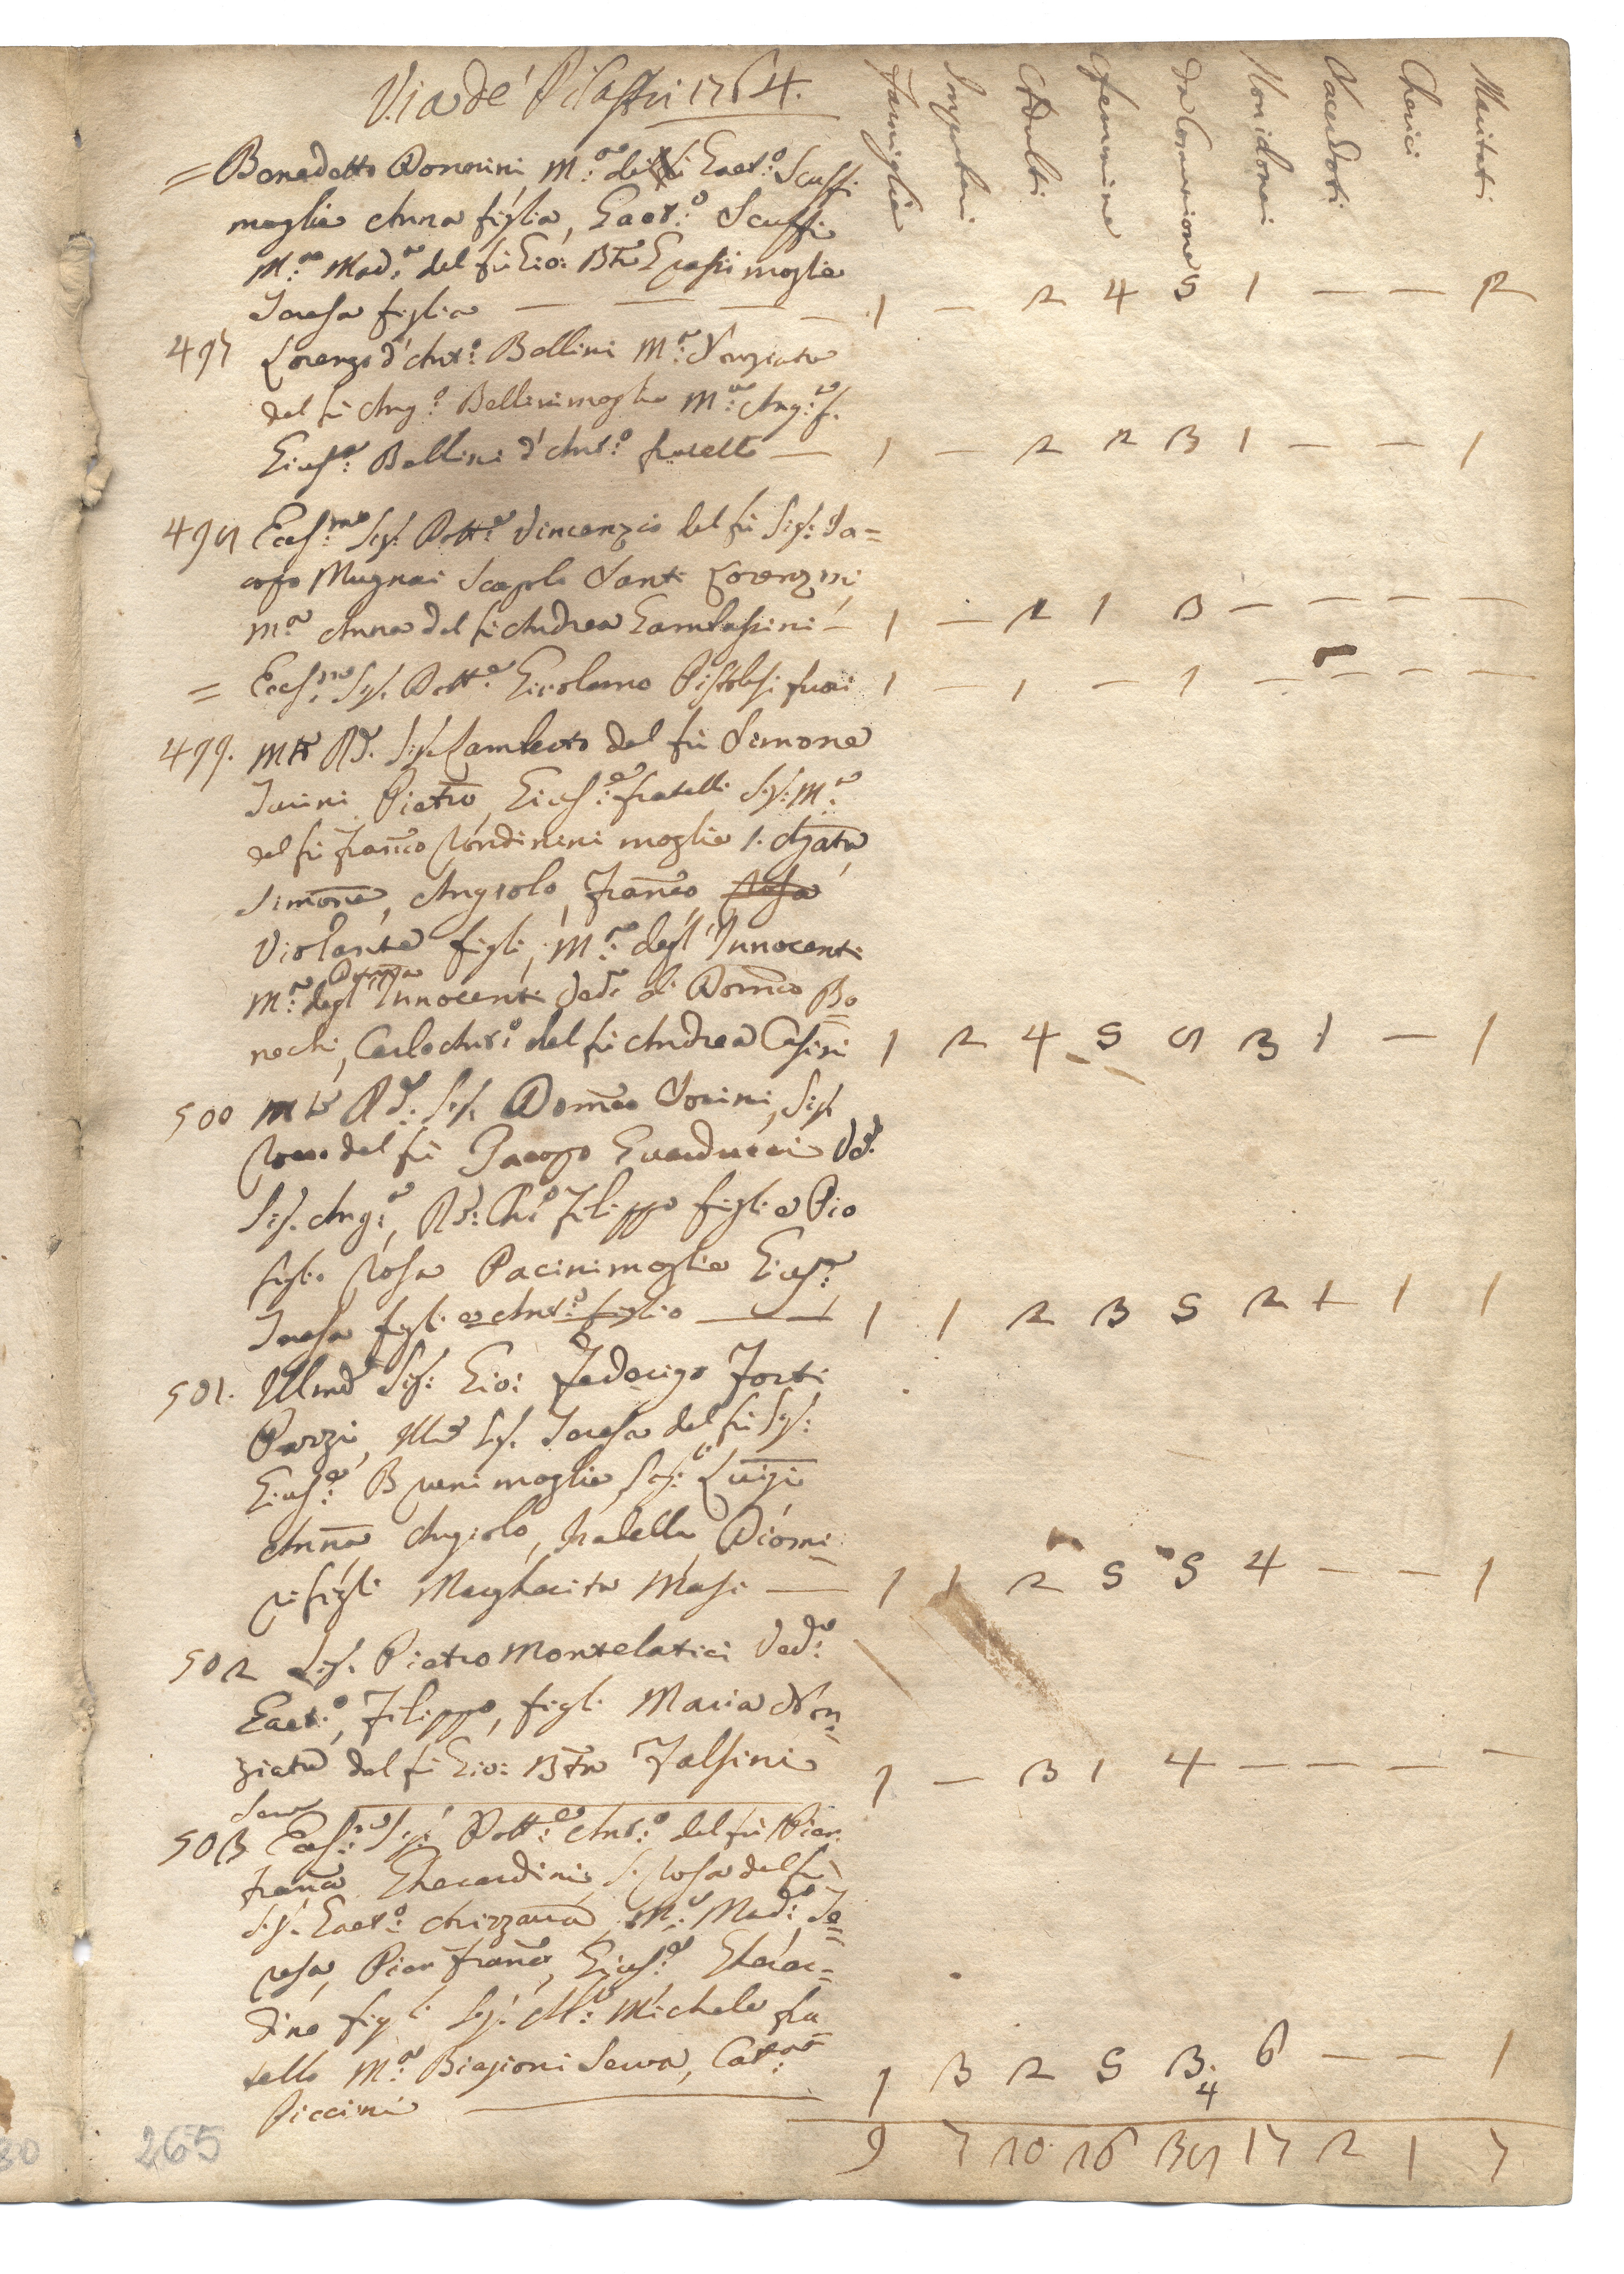 Via de' Pilastri 1764.
Famiglie Impuberi Adulti Femmine Da Comunione Non idonei Sacerdoti Cherici Maritati
= Benedetto Donnini M.ª di Gaet.º Scuffi
moglie Anna figlia, Gaet.º Scuffi
M.ª Mad.ª del fù Gio: Bta Grassi moglie
Teresa figlia — — — — 1 — 2 4 5 1 — — 2
497 Lorenzo d'Ant.º Bellini M.ª Nunziata
del fù Ang.º Bellini moglie M.ª Ang.ª f.
Gius.e Bellini d'Ant.º fratello — 1 — 2 2 3 1 — — 1
498 Ecc.mo Sig. Dott.e Vincenzio del fù Sig. Ja=
copo Mugnai Scapolo Santi Lorenzini
M.ª Anna del fù Andrea Gambassini — 1 — 2 1 3 — — — —
= Ecc.mo Sig. Dott.e Girolamo Pistolesi fuori 1 — 1 — 1 — — — —
499. Mto Rd. Sig. Lamberto del fù Simone
Turini Pietro, Gius.e fratelli Sig. M.ª
del fù Franco Rondinini moglie S. Agata
Simone, Angiolo, Franco, Rosa
Violante figli, M.ª degl'Innocenti
Dom.ca
M.ª degl'Innocenti Ved.ª di Domco Bo=
nechi, Carlo Ant.º del fù Andrea Casini 1 2 4 5 8 3 1 — 1
500 Mto Rd. Sig. Domco Torini, Sig.
Rocco del fù Jacopo Guarducci Vd.
Sig. Ang.ª, Rd. Ch.º Filippo figli e Pio
figlio Rosa Pacini moglie Gius.e
Teresa figli e Ant.º figlio — 1 1 2 3 5 2 1 1 1
501. Illmo Sig. Gio: Federigo Forti
Pazzi, Illma Sig. Teresa del fù Sig.
Gius.e Bruni moglie, Sig. Luigi
Anna Angiolo, Isabella Diomi=
ra figli Margherita Masi — 1 1 2 5 5 4 — — 1
502 Sig. Pietro Montelatici Ved.º
Gaet.º, Filippo, figli Maria Nun=
ziata del fù Gio: Bta Falsini 1 — 3 1 4 — — — —
Serva
503 Ecc.mo Sig. Dott.e Ant.º del fù Pier
Franco Gherardini S. Rosa del fù
Sig. Gaet.º M.ª Mad.ª Te=
resa, Pier Franco, Gius.e Gherar=
dino figli Sig. Michele fra
tello M.ª Biagioni Serva, Cat.na
Piccini — 1 3 2 5 3 6 — — 1
4
9 7 20 26 38 17 2 1 7
265